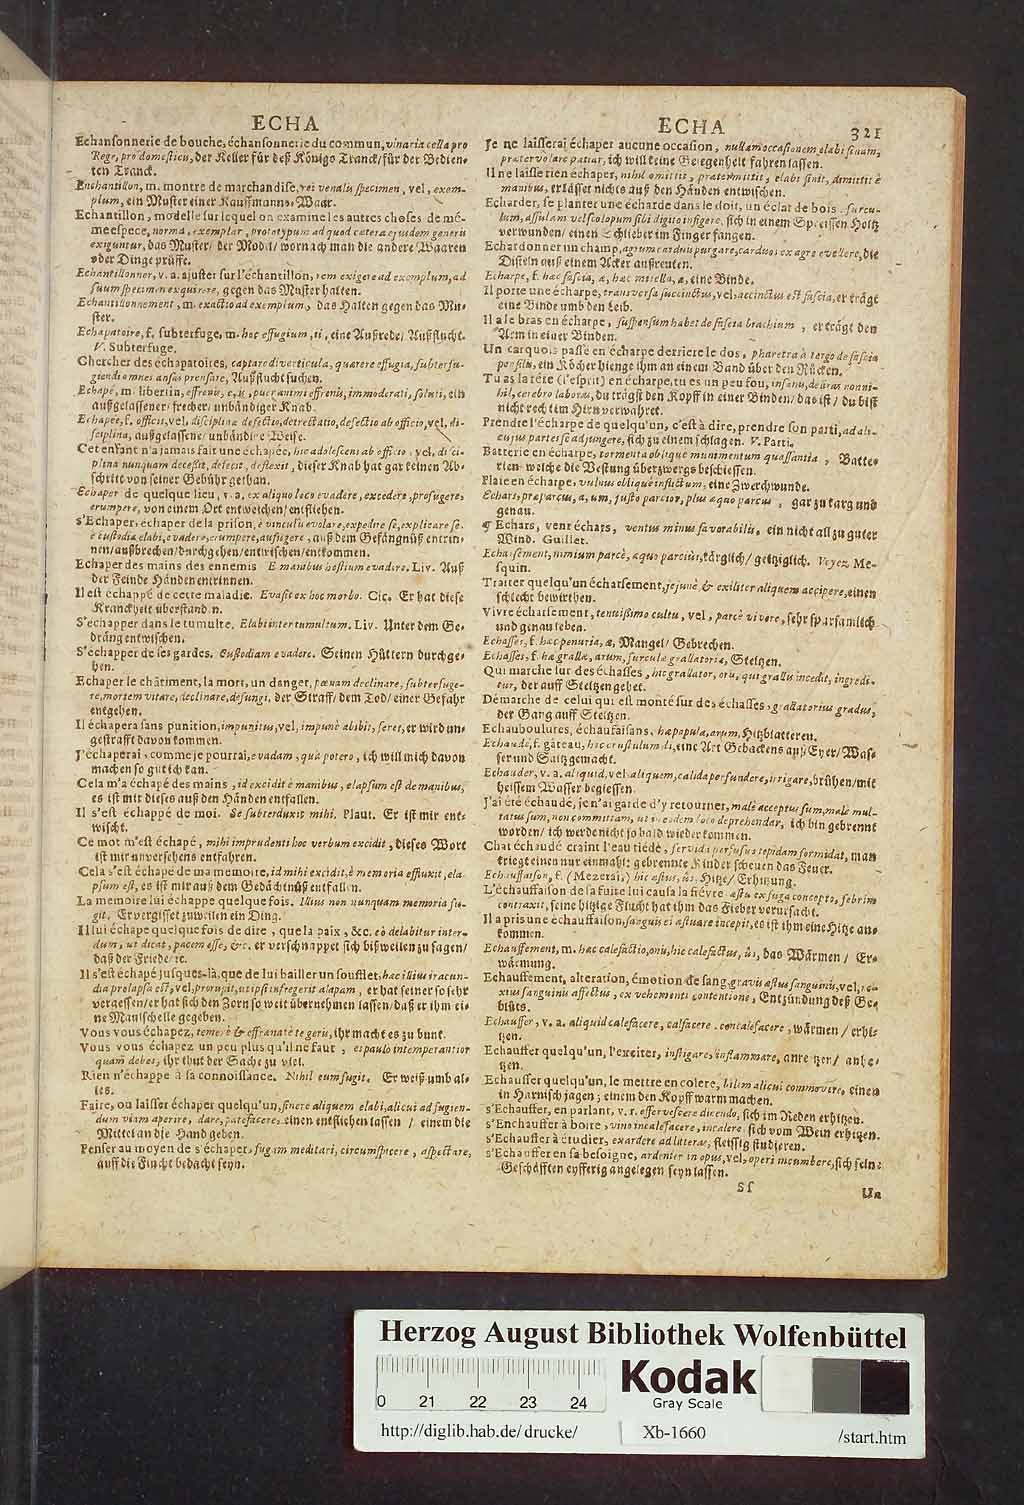 ECHA
Echansonnerie de bouche, échansonnerie du commun, vinaria cella pro
Rege, pro domesticis, der Keller für deß Königs Tranck/ für der Bedien-
ten Tranck.
Enchantillon, m. montre de marchandise, rei venalis specimen, vel, exem-
plum, ein Muster einer Kauffmanns-Waar.
Echantillon, modelle sur lequel on examine les autres choses de mé-
me espece, norma, exemplar, prototypum ad quod cætera ejusdem generis
exiguntur, das Muster/ der Model/ wornach man die andere Waaren
oder Dinge prüffe.
Echantillonner, v. a. ajuster sur l'échantillon, rem exigere ad exemplum, ad
suum specimen exquirere, gegen das Muster halten.
Echantillonnement, m. exactio ad exemplum, das Halten gegen das Mu-
ster.
Echapatoire, f. subterfuge, m. hoc effugium, ii, eine Außrede/ Außflucht.
V. Subterfuge.
Chercher des échapatoires, captare diverticula, quærere effugia, subterfu-
giendi omnes ansas prensare, Außflucht suchen.
Echapé, m. libertin, effrenis, e, is, puer animi effrenis, immoderati, soluti, ein
außgelassener/ frecher/ unbändiger Knab.
Echapée, f. officii, vel, disciplinæ defectio, detrectatio, defectio ab officio, vel, di-
sciplina, außgelassene/ unbändige Weise.
Cet enfant n'a jamais fait une échapée, hic adolescens ab officio, vel, disci-
plina nunquam decessit, defecit, deflexit, dieser Knab hat gar keinen Ab-
schritt von seiner Gebühr gethan.
Echaper de quelque lieu, v. a. ex aliquo loco evadere, excedere, profugere,
erumpere, von einem Ort entweichen/ entfliehen.
s'Echaper, échaper de la prison, è vinculis evolare, expedire se, explicare se,
è custodia elabi, evadere, erumpere, aufugere, auß dem Gefängnüß entrin-
nen/ außbrechen/ durchgehen/ entwischen/ entkommen.
Echaper des mains des ennemis E manibus hostium evadere. Liv. Auß
der Feinde Händen entrinnen.
Il est échappé de cette maladie. Evasit ex hoc morbo. Cic. Er hat diese
Kranckheit überstanden.
S'échapper dans le tumulte. Elabi inter tumultum. Liv. Unter dem Ge-
dräng entwischen.
S'échapper de ses gardes. Custodiam evadere. Seinen Hüttern durchge-
hen.
Echaper le châtiment, la mort, un danger, pœnam declinare, subterfuge-
re, mortem vitare, declinare, defungi, der Straff/ dem Tod/ einer Gefahr
entgehen.
Il échapera sans punition, impunitus, vel, impunè abibit, feret, er wird un-
gestrafft davon kommen.
J'échaperai, comme je pourrai, evadam, quà potero, ich will mich davon
machen so gut ich kan.
Cela m'a échapé des mains, id excidit è manibus, elapsum est de manibus,
es ist mir dieses auß den Händen entfallen.
Il s'est échappé de moi. Se subterduxit mihi. Plaut. Er ist mir ent-
wischt.
Ce mot m'est échapé, mihi imprudenti hoc verbum excidit, dieses Wort
ist mir unversehens entfahren.
Cela s'est échapé de ma memoire, id mihi excidit, è memoria effluxit, ela-
psum est, es ist mir auß dem Gedächtnüß entfallen.
La memoire lui échappe quelque fois. Illius non nunquam memoria fu-
git. Er vergisset zuweilen ein Ding.
Il lui échape quelque fois de dire, que la paix, &c. eò delabitur inter-
dum, ut dicat, pacem esse, &c. er verschnappet sich bißweilen zu sagen/
daß der Friede/ ꝛc.
Il s'est échapé jusques-là, que de lui bailler un soufflet, hac illius iracun-
dia prolapsa est, vel, prorupit, ut ipsi infregerit alapam, er hat seiner so sehr
vergessen/ er hat sich den Zorn so weit übernehmen lassen/ daß er ihm ei-
ne Maulschelle gegeben.
Vous vous échapez, temerè & effrænatè te geris, ihr macht es zu bunt.
Vous vous échapez un peu plus qu'il ne faut, es paulo intemperantior
quàm debes, ihr thut der Sache zu viel.
Rien n'échappe à sa connoissance. Nihil eum fugit. Er weiß umb al-
les.
Faire, ou laisser échaper quelqu'un, sinere aliquem elabi, alicui ad fugien-
dum viam aperire, dare, patefacere, einen entfliehen lassen/ einem die
Mittel an die Hand geben.
Penser au moyen de s'échaper, fugam meditari, circumspicere, aspectare,
auff die Flucht bedacht seyn.
ECHA
321
Je ne laisserai échaper aucune occasion, nullam occasionem elabi sinam,
prætervolare patiar, ich will keine Gelegenheit fahren lassen.
Il ne laisse rien échaper, nihil omittit, prætermittit, elabi sinit, dimittit è
manibus, er lässet nichts auß den Händen entwischen.
Echarder, se planter une écharde dans le doit, un éclat de bois, surcu-
lum, assulam vel scolopum sibi digito infigere, sich in einem Spreissen Holtz
verwunden/ einen Schlieber im Finger fangen.
Echardonner un champ, agrum carduis purgare, carduos ex agro evellere, die
Disteln auß einem Acker außreuten.
Echarpe, f. hæc fascia, æ, hæc mitella, æ, eine Binde.
Il porte une écharpe, transversa succinctus, vel, accinctus est fascia, er trägt
eine Binde umb den Leib.
Il a le bras en écharpe, suspensum habet de fascia brachium, er trägt den
Arm in einer Binden.
Un carquois passé en écharpe derriere le dos, pharetra à tergo de fascia
pensilis, ein Köcher hienge ihm an einem Band über den Rücken.
Tu as la tête (l'esprit) en écharpe, tu es un peu fou, insanis, deliras nonni-
hil, cerebro laboras, du trägst den Kopff in einer Binden/ das ist/ du bist
nicht recht im Hirn verwahret.
Prendre l'écharpe de quelqu'un, c'est à dire, prendre son parti, ad ali-
cujus partes se adjungere, sich zu einem schlagen. V. Parti.
Batterie en écharpe, tormenta obliquè munimentum quassantia, Batte-
rien welche die Vestung überzwergs beschiessen.
Plaie en écharpe, vulnus obliquè inflictum, eine Zwerchwunde.
Echars, præparcus, a, um, justo parcior, plus æquo parcus, gar zu karg und
genau.
¶ Echars, vent échars, ventus minus favorabilis, ein nicht all zu guter
Wind. Guillet.
Echarsement, nimium parcè, æquo parciùs, kärglich/ geitziglich. Voyez Me-
squin.
Traiter quelqu'un écharsement, jejunè & exiliter aliquem accipere, einen
schlecht bewirthen.
Vivre écharsement, tenuissimo cultu, vel, parcè vivere, sehr sparsamlich
und genau leben.
Echasser, f. hæc penuria, æ, Mangel/ Gebrechen.
Echasses, f. hæ grallæ, arum, surculæ grallatoria, Steltzen.
Qui marche sur des échasses, hic grallator, oris, qui grallis incedit, ingredi-
tur, der auff Steltzen gehet.
Démarche de celui qui est monté sur des échasses, grallatorius gradus,
der Gang auff Steltzen.
Echauboulures, échaufaisans, hæ papulæ, arum, Hitzblatteren.
Echaudé, f. gâteau, hoc crustulum di, eine Art Gebackens auß Eyer/ Was-
ser und Saltz gemacht.
Echauder, v. a. aliquid, vel aliquem, calida perfundere, irrigare, brühen/ mit
heissem Wasser begiessen.
J'ai été échaudé, je n'ai garde d'y retourner, malè acceptus sum, malè mul-
tatus sum, non committam, ut in eodem loco deprehendar, ich bin gebrennt
worden/ ich werde nicht so bald wieder kommen.
Chat échaudé craint l'eau tiéde, fervidâ perfusus tepidam formidat, man
kriegt einen nur einmahl; gebrennte Kinder scheuen das Feuer.
Echauffaison, f. (Mezerai,) hic æstus, ûs. Hitze/ Erhitzung.
L'échauffaison de sa fuite lui causa la fiévre, æstu ex fuga concepto, febrim
contraxit, seine hitzige Flucht hat ihm das Fieber verursacht.
Il a pris une échauffaison, sanguis ei æstuare incepit, es ist ihm eine Hitze an-
kommen.
Echauffement, m. hæc calefactio, onis, hic calefactus, ûs, das Wärmen/ Er-
wärmung.
Echauffement, alteration, émotion de sang, gravis æstus sanguinis, vel, no-
xius sanguinis affectus, ex vehementi contentione, Entzündung deß Ge-
blüts.
Echauffer, v. a. aliquid calefacere, calfacere, concalefacere, wärmen/ erhi-
tzen.
Echauffer quelqu'un, l'exciter, instigare, inflammare, anreitzen/ anhe-
tzen.
Echauffer quelqu'un, le mettre en colere, bilem alicui commovere, einen
in Harnisch jagen; einem den Kopff warm machen.
s'Echauffer, en parlant, v. r. effervescere dicendo, sich im Reden erhitzen.
s'Enchauffer à boire, vino incalefacere, incalere, sich vom Wein erhitzen.
s'Echauffer à étudier, exardere ad litteras, fleissig studieren.
s'Echauffer en sa besoigne, ardenter in opus, vel, operi incumbere, sich seine
Geschäfften eyfferig angelegen seyn lassen.
Sf
Un
Herzog August Bibliothek Wolfenbüttel
Kodak
Gray Scale
0 21 22 23 24
http://diglib.hab.de/drucke/
Xb-1660
/start.htm